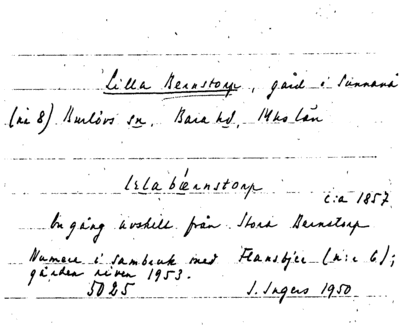 Lilla Bernstorp, gård i Sunnanå
(nr 8) Burlövs sn, Bara hd, Mhs län
lela bærnstorp
c:a 1857
en gång avskilt från Stora Bernstorp
Numera i sambruk med Flansbjer (n:r 6);
gården riven 1953.
5025 S. Ingers 1950